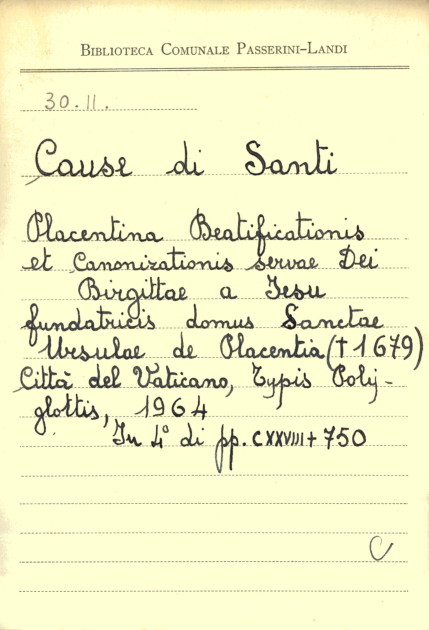 BIBLIOTECA COMUNALE PASSERINI-LANDI
30.II.
Cause di Santi
Placentina Beatificationis
et Canonizationis servae Dei
Birgittae a Iesu
fundatricis domus Sanctae
Ursulae de Placentia († 1679)
Città del Vaticano, Typis Poly-
glottis, 1964
In 4° di pp. CXXVIII + 750
C